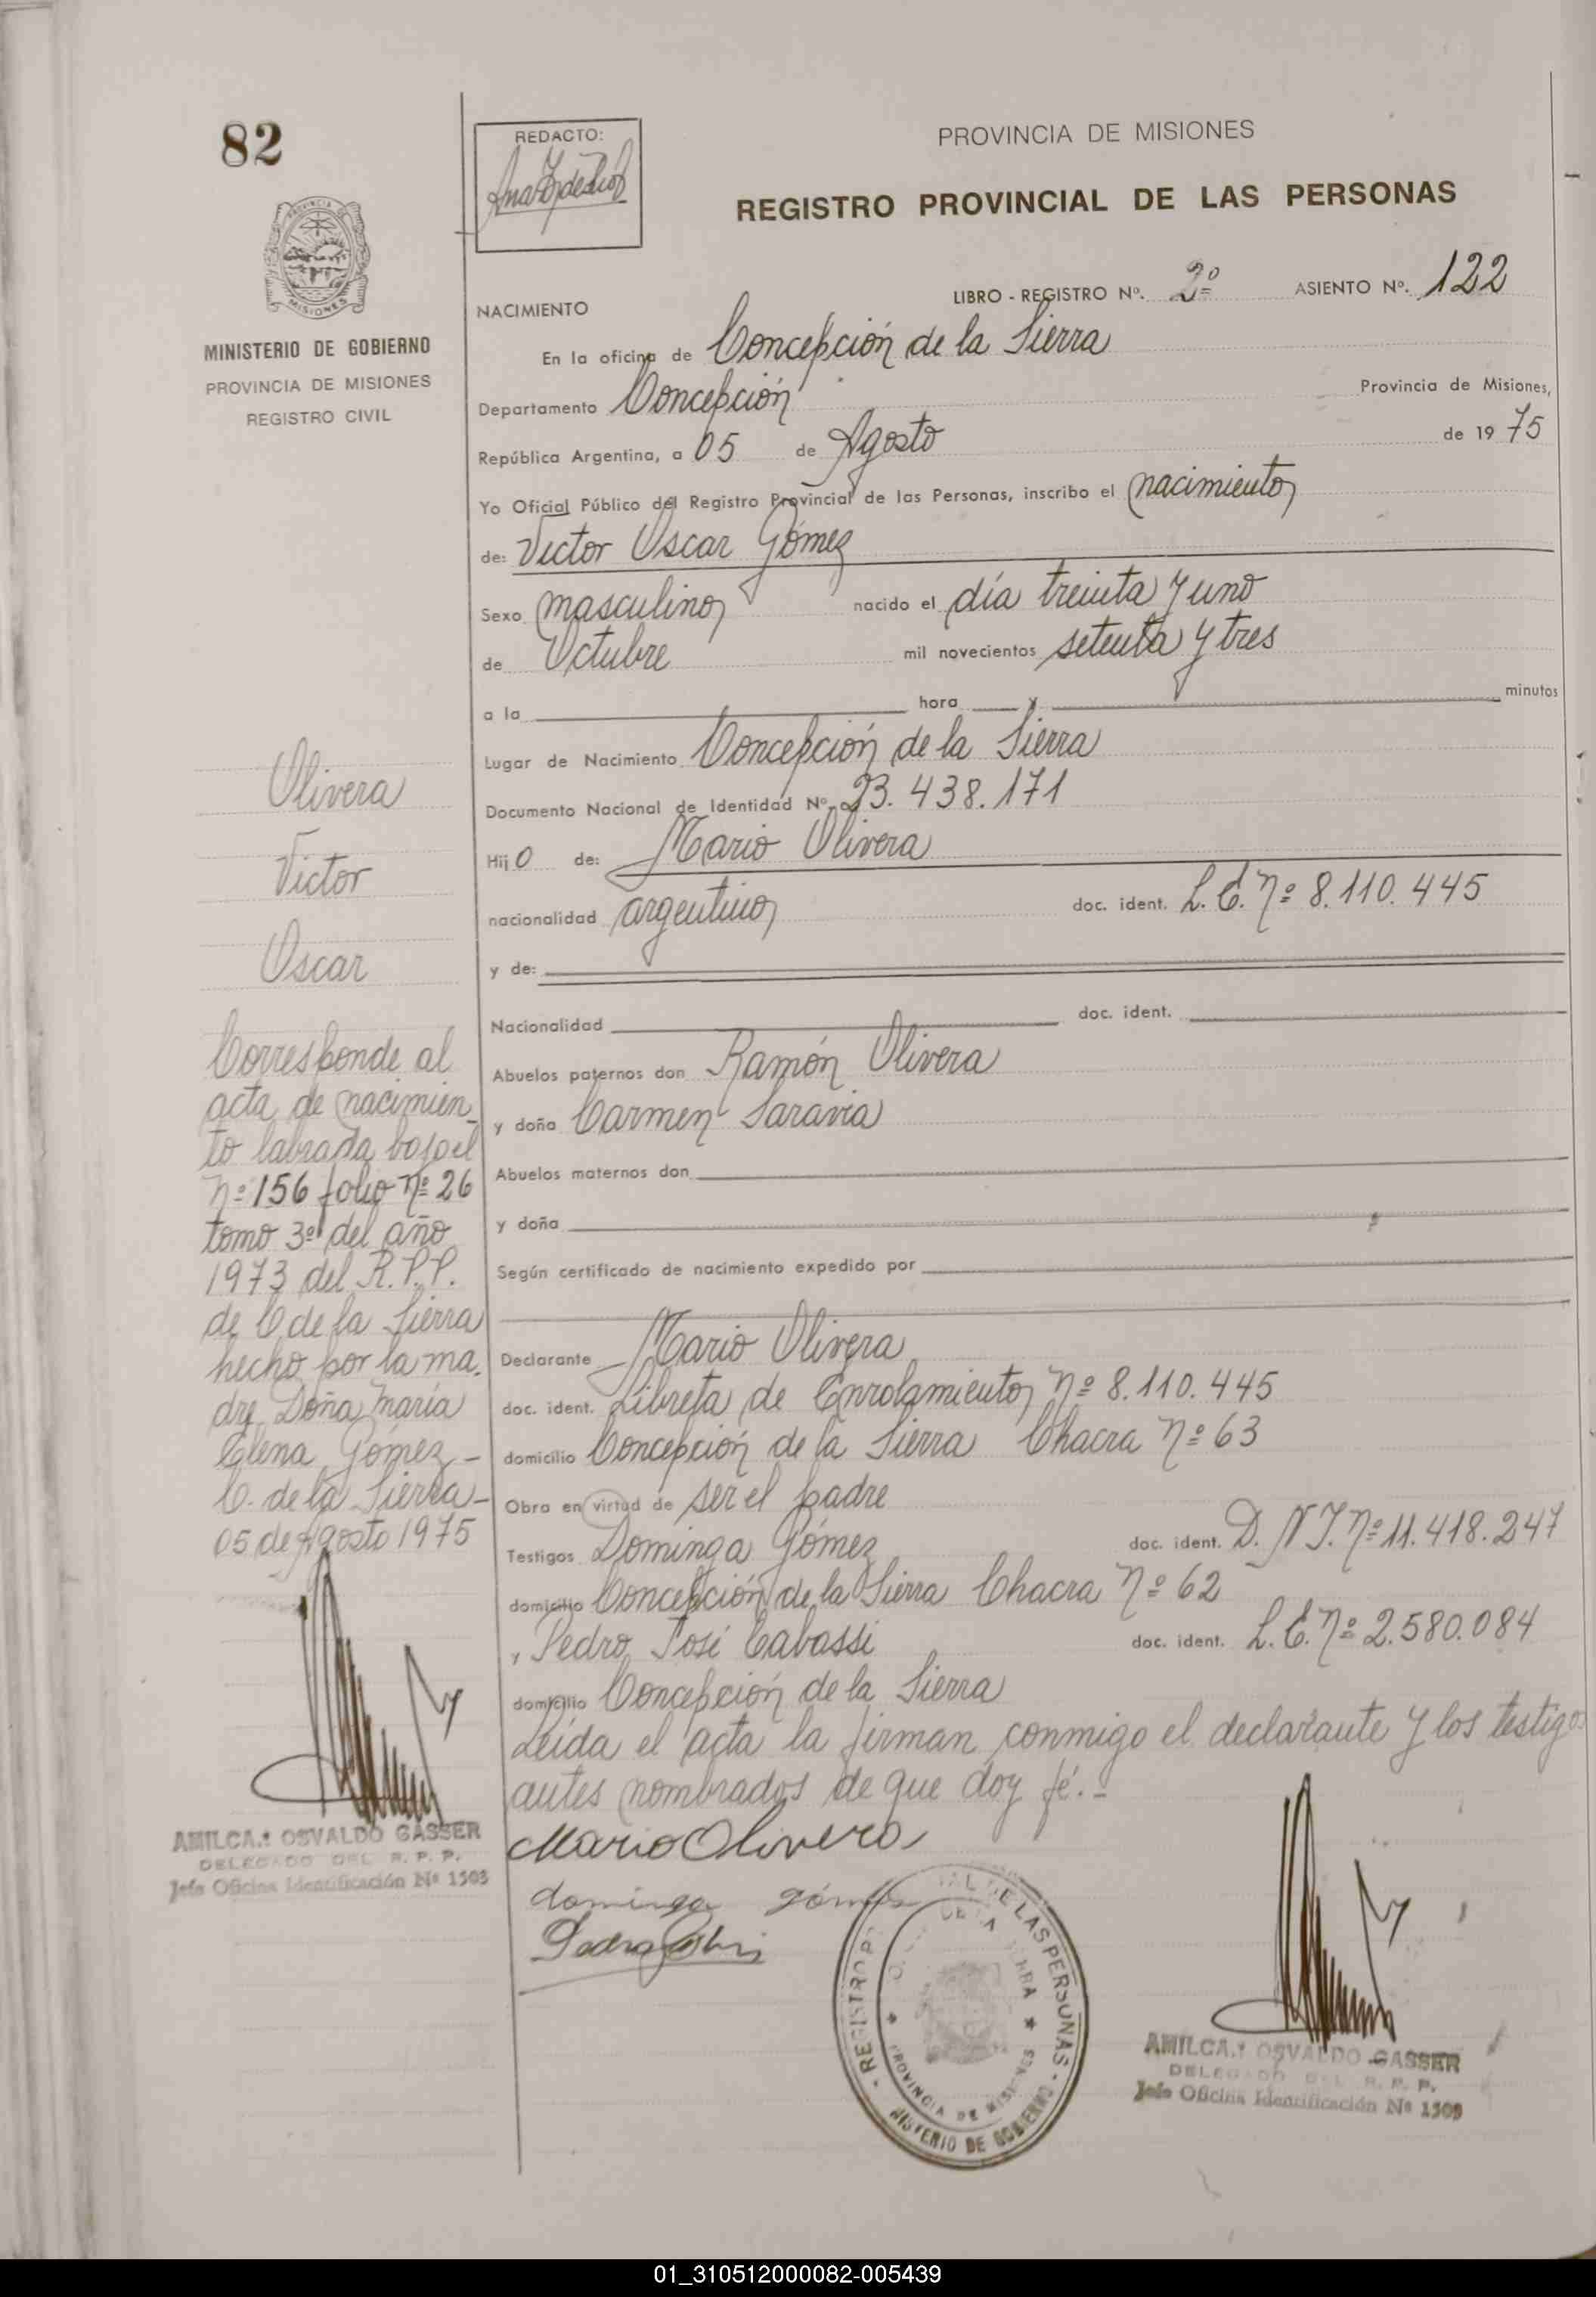 82
REDACTO:
PROVINCIA DE MISIONES
REGISTRO PROVINCIAL DE LAS PERSONAS
PROVINCIA DE
MISIONES
MINISTERIO DE GOBIERNO
PROVINCIA DE MISIONES
REGISTRO CIVIL
LIBRO - REGISTRO Nº. 2º ASIENTO Nº. 122
NACIMIENTO
En la oficina de Concepción de la Sierra
Departamento Concepción Provincia de Misiones,
República Argentina, a 05 de Agosto de 1975
Yo Oficial Público del Registro Provincial de las Personas, inscribo el nacimiento
de: Victor Oscar Gómez
Sexo masculino nacido el día treinta y uno
de Octubre mil novecientos setenta y tres
a la hora y minutos
Lugar de Nacimiento Concepción de la Sierra
Documento Nacional de Identidad Nº 23.438.171
Hijo de: Mario Olivera
nacionalidad argentino doc. ident. L. E. Nº 8.110.445
y de:
Nacionalidad doc. ident.
Abuelos paternos don Ramón Olivera
y doña Carmen Saravia
Abuelos maternos don
y doña
Según certificado de nacimiento expedido por
Declarante Mario Olivera
doc. ident. Libreta de Enrolamiento Nº 8.110.445
domicilio Concepción de la Sierra Chacra Nº 63
Obra en virtud de ser el padre
Testigos Dominga Gómez doc. ident. D. N I. Nº 11.418.247
domicilio Concepción de la Sierra Chacra Nº 62
y Pedro José Cabassi doc. ident. L. E. Nº 2.580.084
domicilio Concepción de la Sierra
Leída el acta la firman conmigo el declarante y los testigos
antes nombrados de que doy fé.-
Mario Olivera
dominga gómes
Olivera
Victor
Oscar
Corresponde al
acta de nacimien
to labrada bajo el
Nº 156 folio Nº 26
tomo 3º del año
1973 del R.P.P.
de C de la Sierra
hecho por la ma.
dre Doña María
Elena Gómez -
C. de la Sierra -
05 de Agosto 1975
AMILCAR OSVALDO GASSER
DELEGADO DEL R. P. P.
Jefe Oficina Identificación Nº 1503
PROVINCIA DE MISIONES
MINISTERIO DE GOBIERNO
AMILCAR OSVALDO GASSER
DELEGADO DEL R. P. P.
Jefe Oficina Identificación Nº 1503
01_310512000082-005439